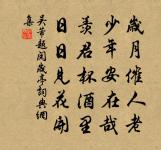 歲月催人老
少年安在哉
羨君杯酒里
日日見花開
吳芾題閱歲亭詞典網
集